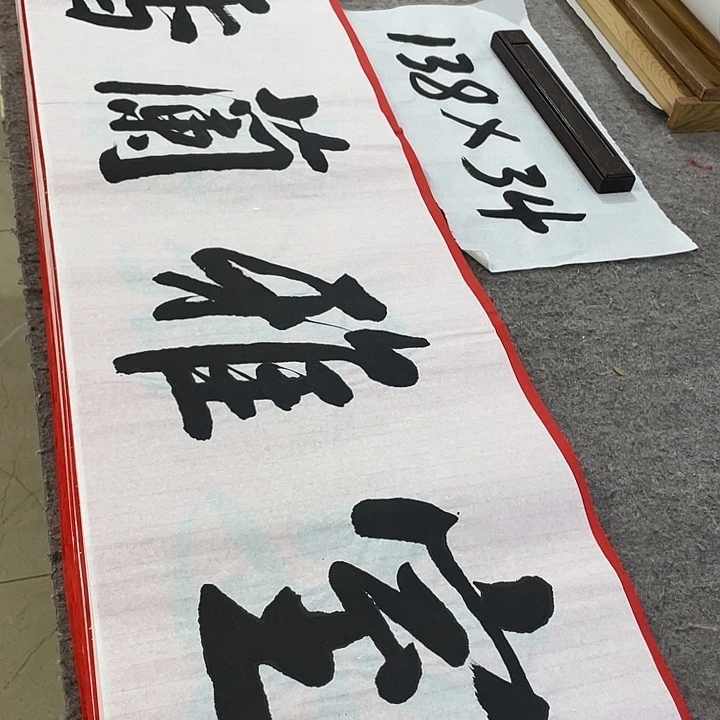 蘭雅室
138×34